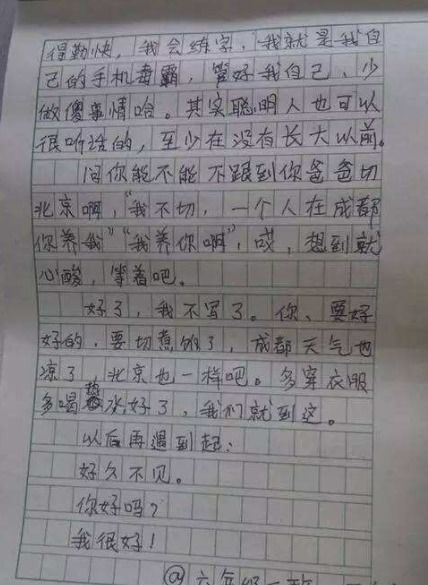 得勤快，我会练字，"我就是我自
己的手机毒霸，管好我自己、少
做傻事情哈。其实聪明人也可以
很听话的，至少在没有长大以前。
问你能不能不跟到你爸爸切
北京啊，"我不切，一个人在成都
你养我""我养你啊"，哎，想到就
心酸，等着吧。
好了，我不写了。你、要好
好的，要切煮饭了，成都天气也
凉了，北京也一样吧。多穿衣服
多喝热水好了，我们就到这。
以后再遇到起：
好久不见。
你好吗？
我很好！
@六年级一